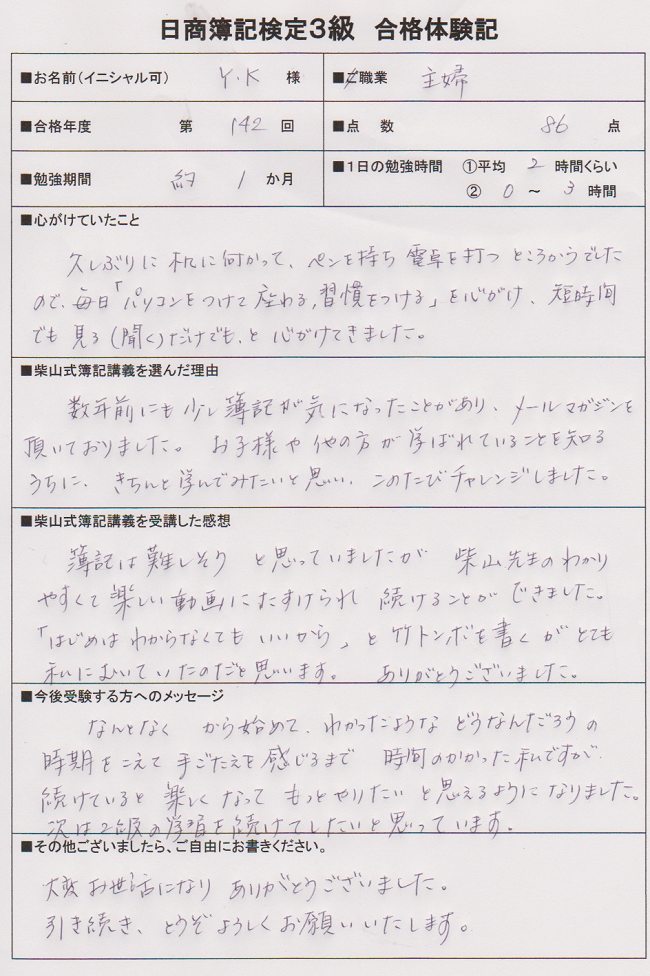 日商簿記検定3級 合格体験記
■お名前(イニシャル可) Y.K 様 ■ご職業 主婦
■合格年度 第 142 回 ■点 数 86 点
■勉強期間 約 1 か月 ■1日の勉強時間 ①平均 2 時間くらい
② 0 ~ 3 時間
■心がけていたこと
久しぶりに机に向かって、ペンを持ち 電卓を打つ ところからでした
ので、毎日「パソコンをつけて座わる,習慣をつける」を心がけ、短時間
でも見る(聞く)だけでも、と心がけてきました。
■柴山式簿記講義を選んだ理由
数年前にも少し簿記が気になったことがあり、メールマガジンを
頂いておりました。 お子様や他の方が学ばれていることを知る
うちに、きちんと学んでみたいと思い、このたびチャレンジしました。
■柴山式簿記講義を受講した感想
簿記は難しそう と思っていましたが 柴山先生のわかり
やすくて楽しい動画にたすけられ 続けることができました。
「はじめはわからなくてもいいから」と竹トンボを書くがとても
私にむいていたのだと思います。 ありがとうございました。
■今後受験する方へのメッセージ
なんとなく から始めて、わかったような どうなんだろうの
時期をこえて 手ごたえを感じるまで 時間のかかった私ですが、
続けていると 楽しくなって もっとやりたい と思えるようになりました。
次は2級の学習を続けてしたいと思っています。
■その他ございましたら、ご自由にお書きください。
大変お世話になり ありがとうございました。
引き続き、どうぞよろしくお願いいたします。